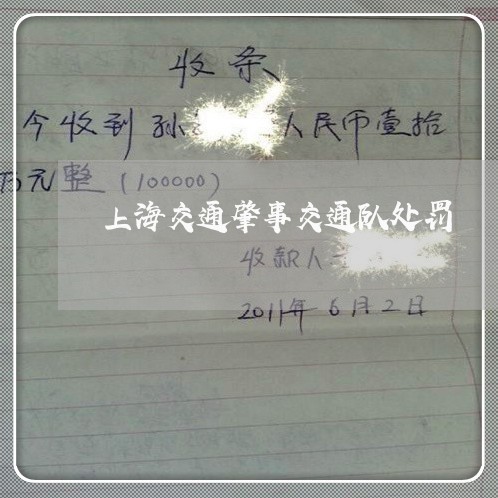 收条
今收到孙 人民币壹拾
万元整（100000）
上海交通肇事交通队处罚
收款人
2011年6月2日